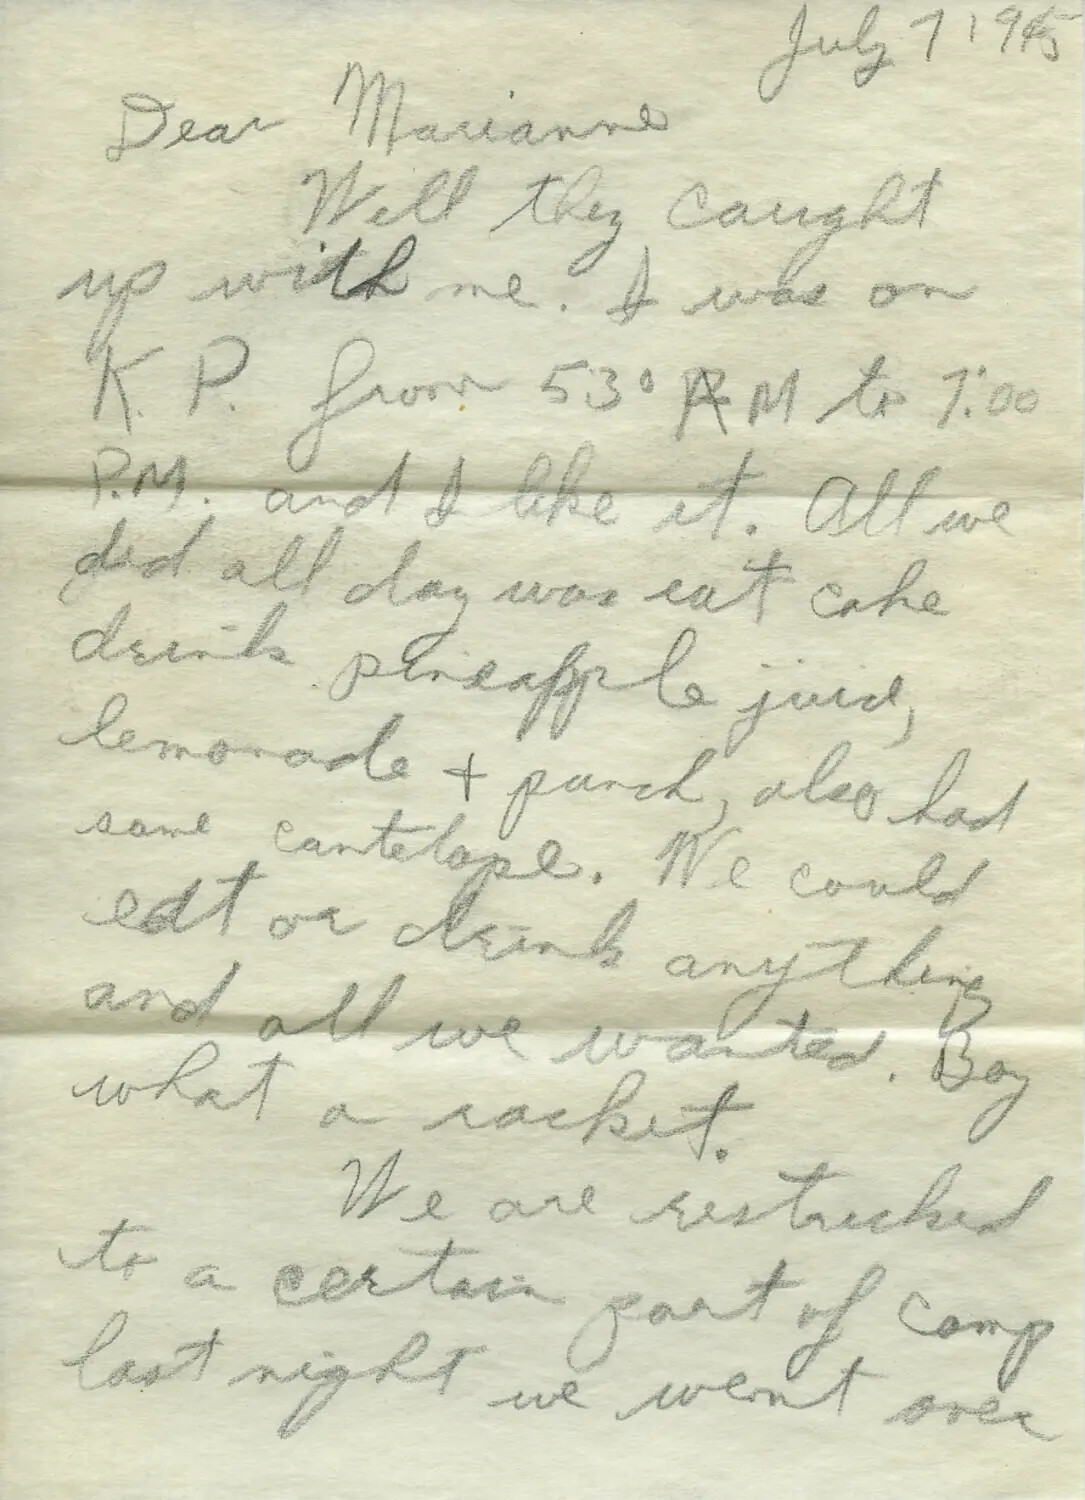 July 7 1945
Dear Marianne
Well they caught
up with me. I was on
K. P. from 530 AM to 7:00
P.M. and I like it. All we
did all day was eat cake
drink pineapple juice,
lemonade + punch, also had
some cantelope. We could
eat or drink anything
and all we wanted. Boy
what a racket.
We are restricked
to a certain part of camp
last night we went over